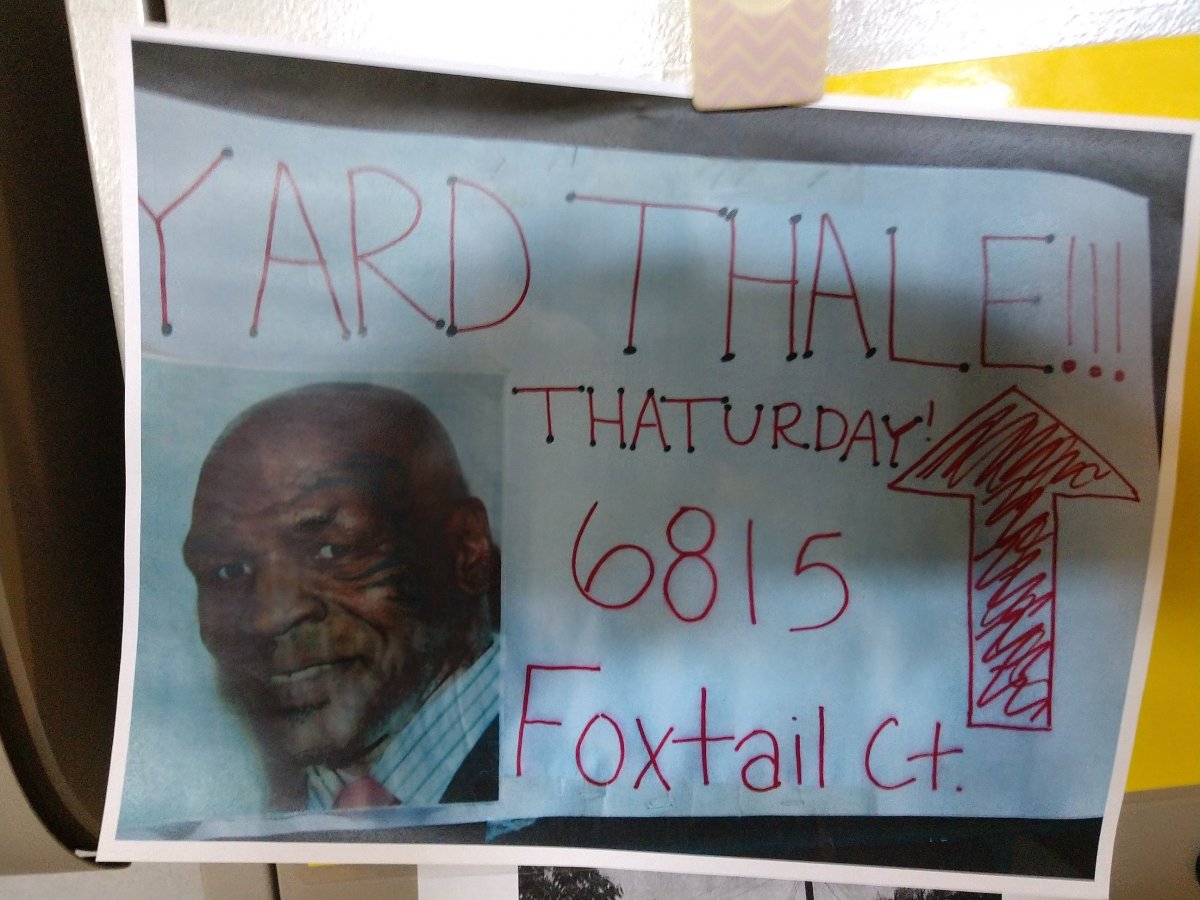 YARD THALE!!!
THATURDAY!
6815
Foxtail Ct.